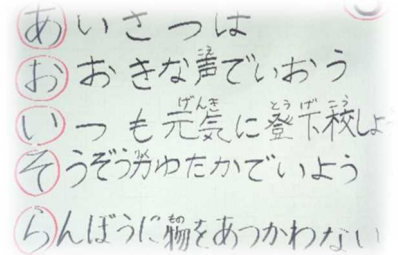 あいさつは
おおきな声でいおう
いつも元気に登下校しよ
そうぞう力ゆたかでいよう
らんぼうに物をあつかわない